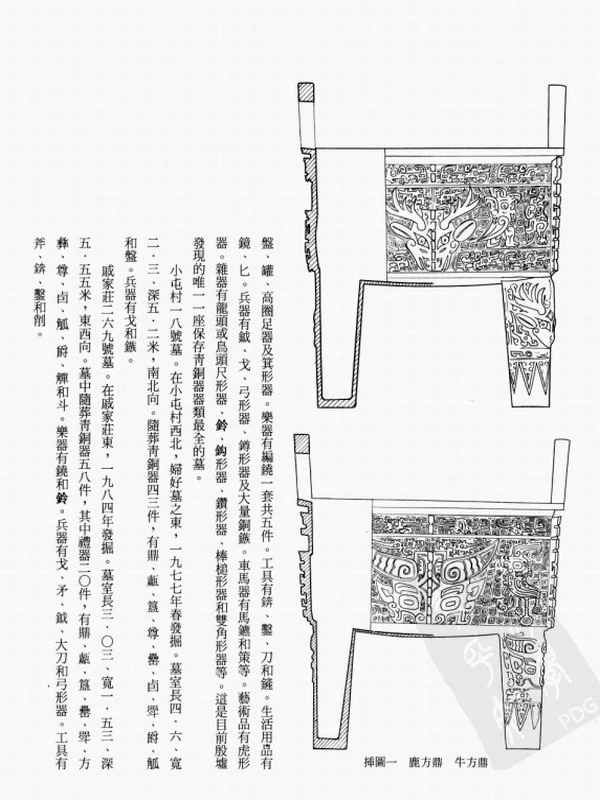 盤、罐、高圈足器及箕形器。樂器有編鐃一套共五件。工具有錛、鑿、刀和鏟。生活用品有
鏡、匕。兵器有鉞、戈、弓形器、鐏形器及大量銅鏃。車馬器有馬鑣和策等。藝術品有虎形
器。雜器有龍頭或鳥頭尺形器、鈴、鈎形器、鑽形器、棒槌形器和雙角形器等。這是目前殷墟
發現的唯一一座保存青銅器器類最全的墓。
小屯村一八號墓。在小屯村西北，婦好墓之東，一九七七年春發掘。墓室長四·六、寬
二·三、深五·二米，南北向。隨葬青銅器四三件，有鼎、甗、簋、尊、罍、卣、斝、爵、觚
和盤。兵器有戈和鏃。
戚家莊二六九號墓。在戚家莊東，一九八四年發掘。墓室長三·〇三、寬一·五三、深
五·五五米，東西向。墓中隨葬青銅器五八件，其中禮器二〇件，有鼎、甗、簋、罍、斝、方
彝、尊、卣、觚、爵、觶和斗。樂器有鐃和鈴。兵器有戈、矛、鉞、大刀和弓形器。工具有
斧、錛、鑿和削。
挿圖一　鹿方鼎　牛方鼎
PDG